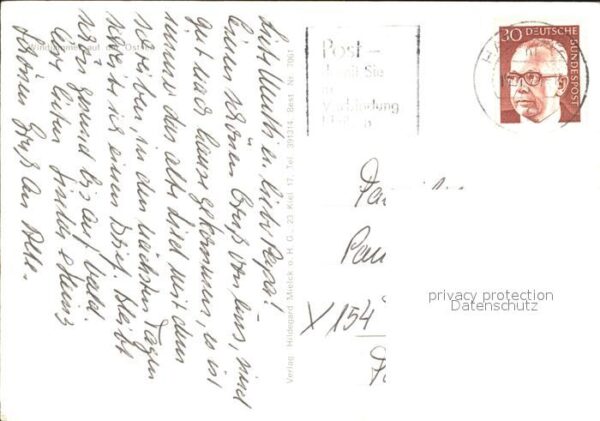 Windjammer auf der Ostsee
Liebe Mutti u. lieber Papa!
Einen schönen Gruß von uns, sind
gut nach Hause gekommen, es ist
immer das alte Lied mit dem
schreiben, in den nächsten Tagen
folgt ein Brief. Bleibt
schön gesund bis auf bald
Eure lieben
Schönen Gruß an Alle.
Verlag: Hildegard Mielck o. H. G., 23 Kiel 17, Tel. 391314 Best. Nr. 7061
Post –
damit Sie
in
Verbindung
bleiben
30 DEUTSCHE
BUNDESPOST
Fa
Pau
X 154
privacy protection
Datenschutz